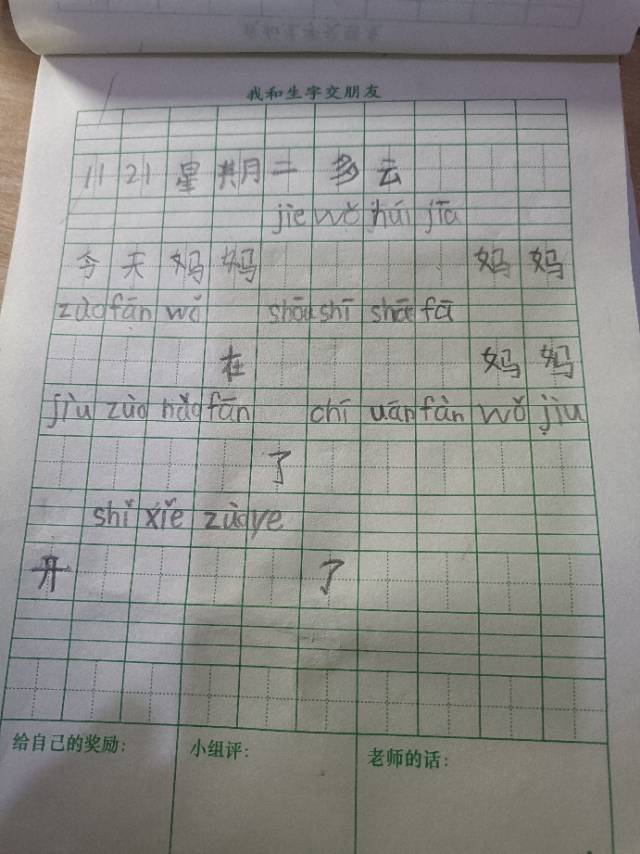 我和生字交朋友
11 21 星期二 多云
jiē wǒ húi jīa
今天妈妈 妈妈
zùo fān wǒ shōu shī shā fā
在 妈妈
jìu zùo hǎo fān chī uán fàn wǒ jìu
了
shǐ xiě zùo ye
开 了
给自己的奖励: 小组评: 老师的话: